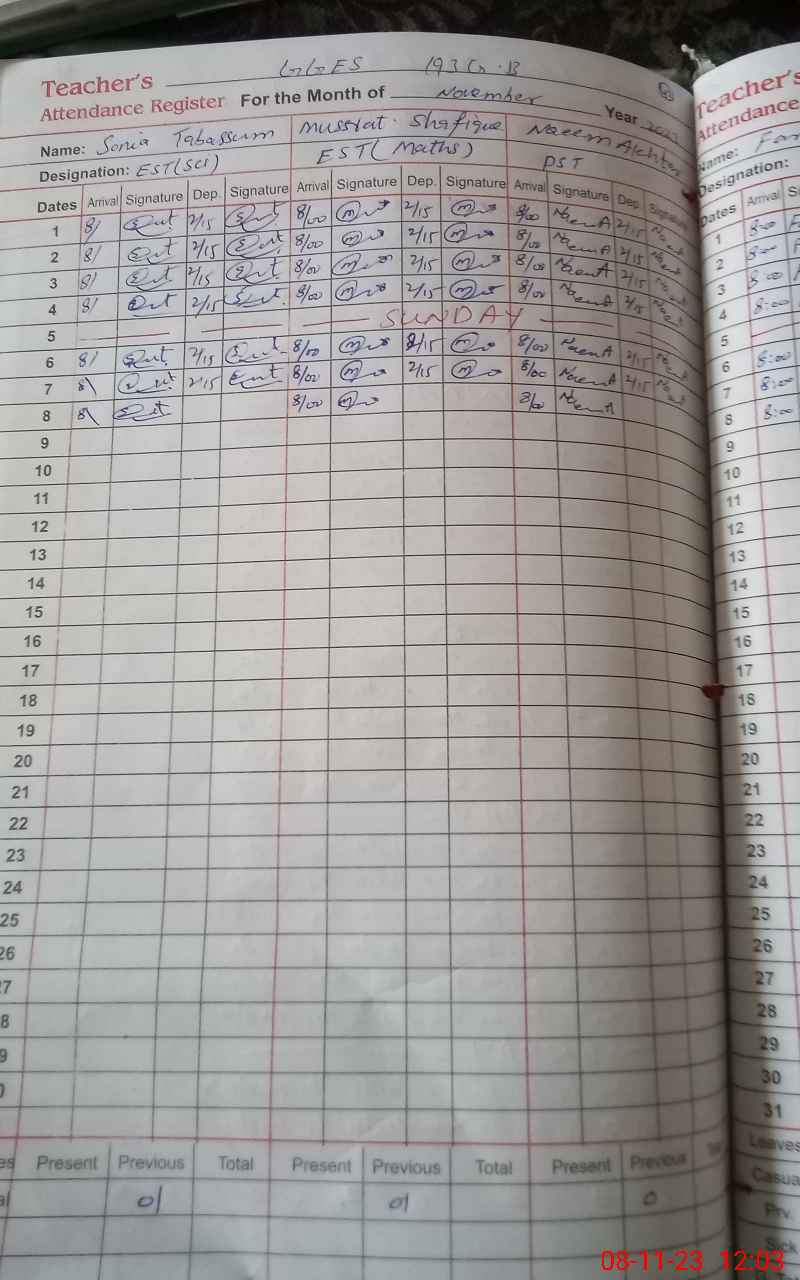 Teacher's GGES 193 G.B
Attendance Register For the Month of November Year 2023
Name: Sonia Tabassum Mussrat Shafique Naeem Akhter
Designation: EST(Sci) EST(Maths) PST
Dates Arrival Signature Dep. Signature Arrival Signature Dep. Signature Arrival Signature Dep. Signature
1 8/ 2/15 8/00 2/15 8/00 NaeemA 2/15
2 8/ 2/15 8/00 2/15 8/00 NaeemA 2/15
3 8/ 2/15 8/00 2/15 8/00 NaeemA 2/15
4 8/ 2/15 8/00 2/15 8/00 NaeemA 2/15
5 SUNDAY
6 8/ 2/15 8/00 2/15 8/00 NaeemA 2/15
7 8/ 2/15 8/00 2/15 8/00 NaeemA 2/15
8 8/ 8/00 8/00 NaeemA
9
10
11
12
13
14
15
16
17
18
19
20
21
22
23
24
25
26
7
8
9
Present Previous Total Present Previous Total Present Previous
01 01 0
Teacher's
Attendance
Name:
Designation:
Dates Arrival
1 8:00
2 8:00
3 8:00
4 8:00
5
6 8:00
7 8:00
8 8:00
9
10
11
12
13
14
15
16
17
18
19
20
21
22
23
24
25
26
27
28
29
30
31
Leaves
Casua
Prv.
Sick
08-11-23 12:03